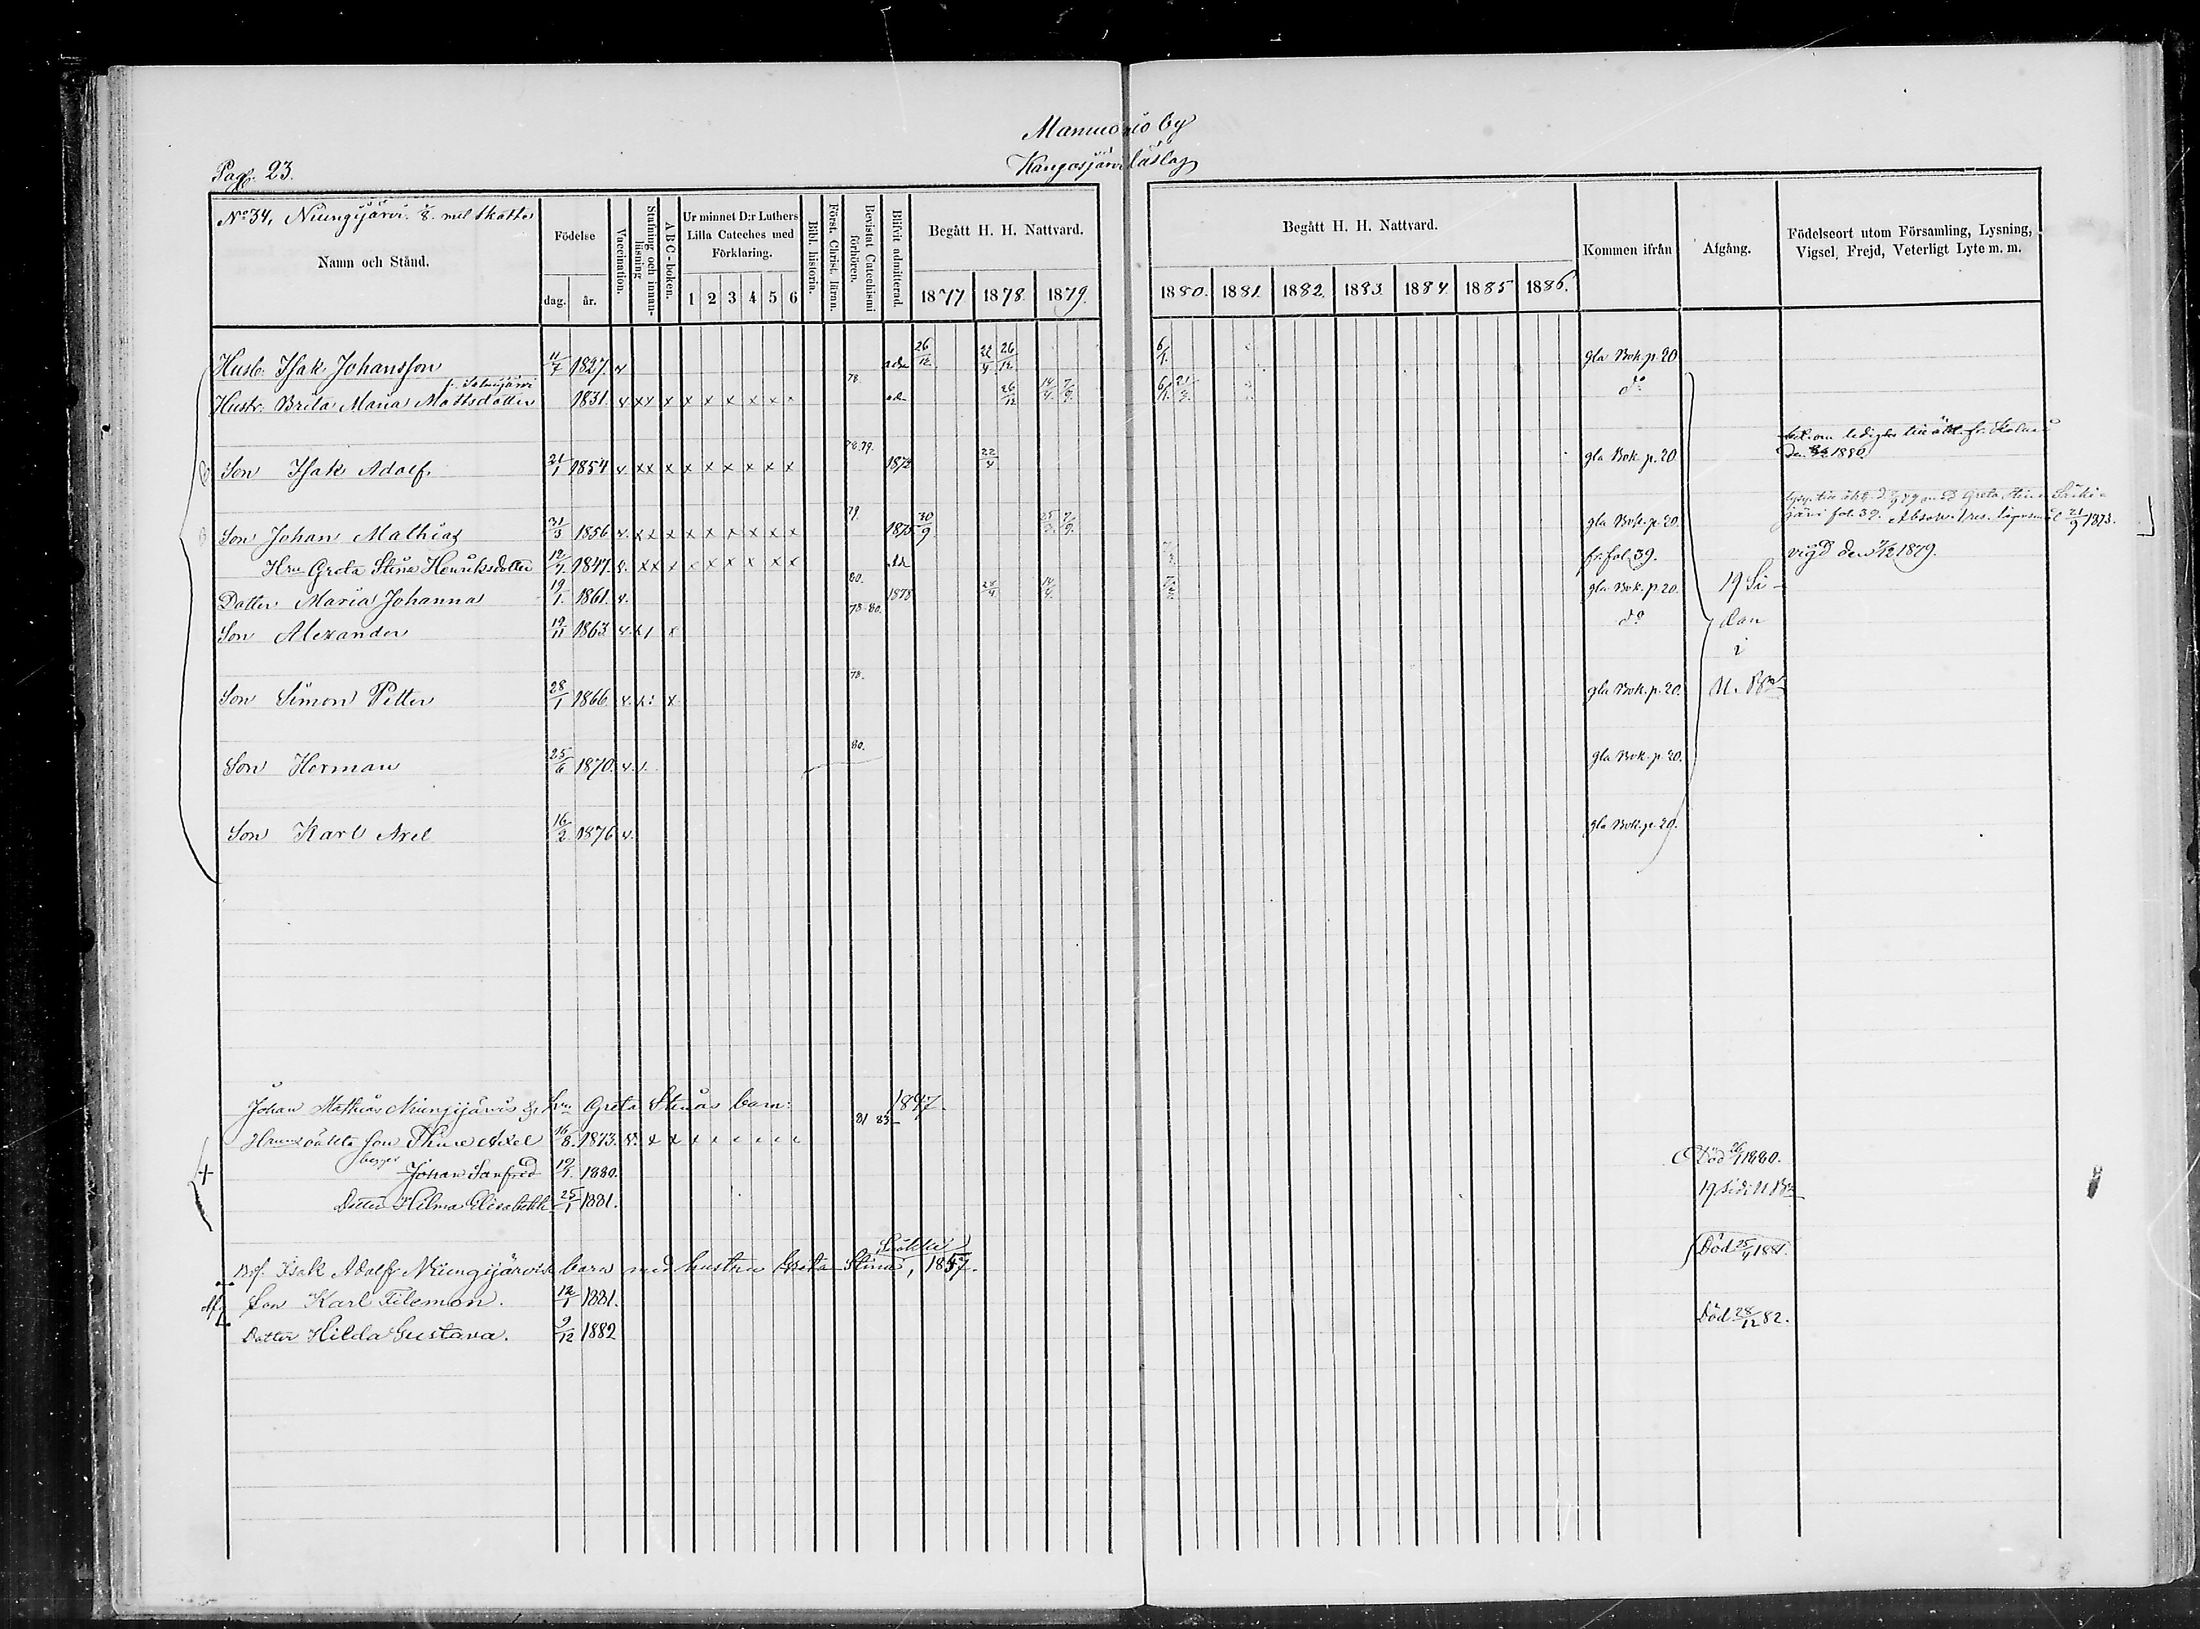 Muonio by
Kangosjärvi läslag
Pag. 23.
No 34, Niungijärvi. 1/8 mtl skatte
Namn och Stånd.
Födelse
dag. år.
Vaccination.
Stafning och innan-läsning
ABC-boken.
Ur minnet D:r Luthers Lilla Cateches med Förklaring.
1 2 3 4 5 6
Bibl. historia.
Först. Christ. läran.
Bevistat Catechismi förhören.
Blifvit admitterad.
Begått H. H. Nattvard.
1877 1878. 1879.
Begått H. H. Nattvard.
1880. 1881. 1882. 1883. 1884 1885 1886.
Kommen ifrån
Afgång.
Födelseort utom Församling, Lysning, Vigsel, Frejd, Veterligt Lyte m. m.
Husb. Isak Johansson 11/7 1827. v adm 26/12 22/4 26/12 6/1. gla Bok. p. 20
Hustr. Brita Maria Mattsdotter 1831. v xx x x x x x x x 78. adm 26/12 14/4. 7/9. 6/1. 21/7. do
Son Isak Adolf. 21/1 1854 v. xx x x x x x x x 78.79. 1872 22/4 gla Bok. p. 20 den 1880
Son Johan Mathias 31/3 1856 v. xx x x x x x x x 79. 1875 30/9 25/3. 7/9. gla Bok. p. 20. järvi fol. 39. 21/9 1873.
Hru Greta Stina Henriksdotter 12/4. 1847. v. xx x x x x x x x fr. fol. 39. vigd den 7/12 1879.
Dotter Maria Johanna 19/1. 1861. v. 80. 1878 14/4. gla Bok. p. 20. 19 Si-
Son Alexander 19/11 1863 v. x/ x 78-80. do dan
i
Son Simon Petter 28/1 1866. v. x: x 78. gla Bok. p. 20. N. Bn
Son Herman 25/6 1870. v. /. 80. gla Bok. p. 20.
Son Karl Axel 16/2 1876 v. gla Bok. p. 20.
Johan Mathias Niungijärvis & hru Greta Stinas barn: 1847.
Hruns oäkta son Thure Axel 16/8. 1873. v. x x x x x x x x 81 83
Johan Sanfrid 19/1 1880. Död 26/1 1880.
Dotter Hilma Elisabeth 25/1 1881. 19 sid i N Bn
Död 25/4 1881.
Bof. Isak Adolf Niungijärvis barn med hustru Greta Stina, 1857.
Son Karl Filemon. 12/1 1881.
Dotter Hilda Gustava. 9/12 1882 Död 28/12 82.